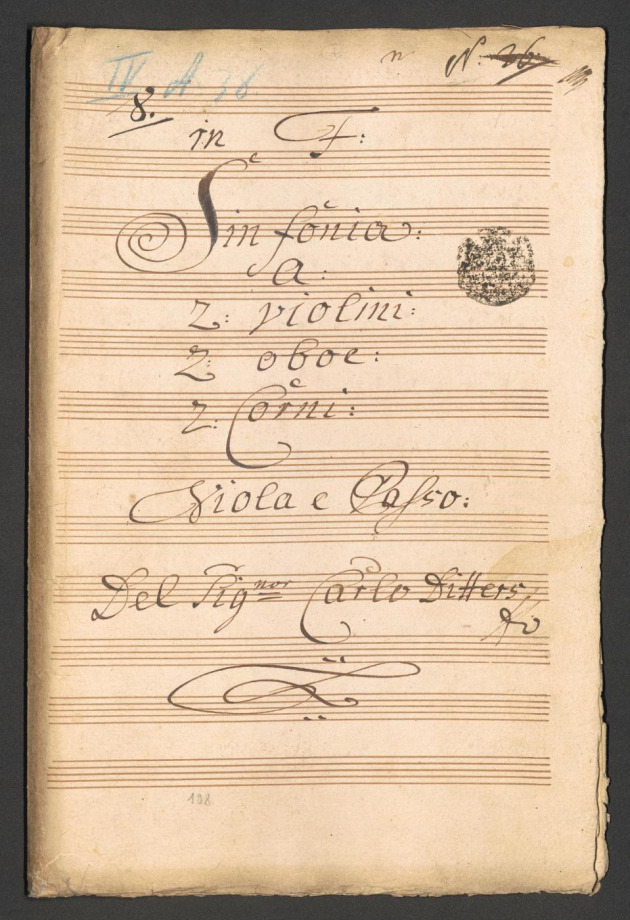 IV A 36
N. 26.
8.
in F:
Sinfonia:
a:
2: violini:
2: oboe:
2: Corni:
Viola e Basso:
Del Sig<sup>nor</sup> Carlo Ditters
198